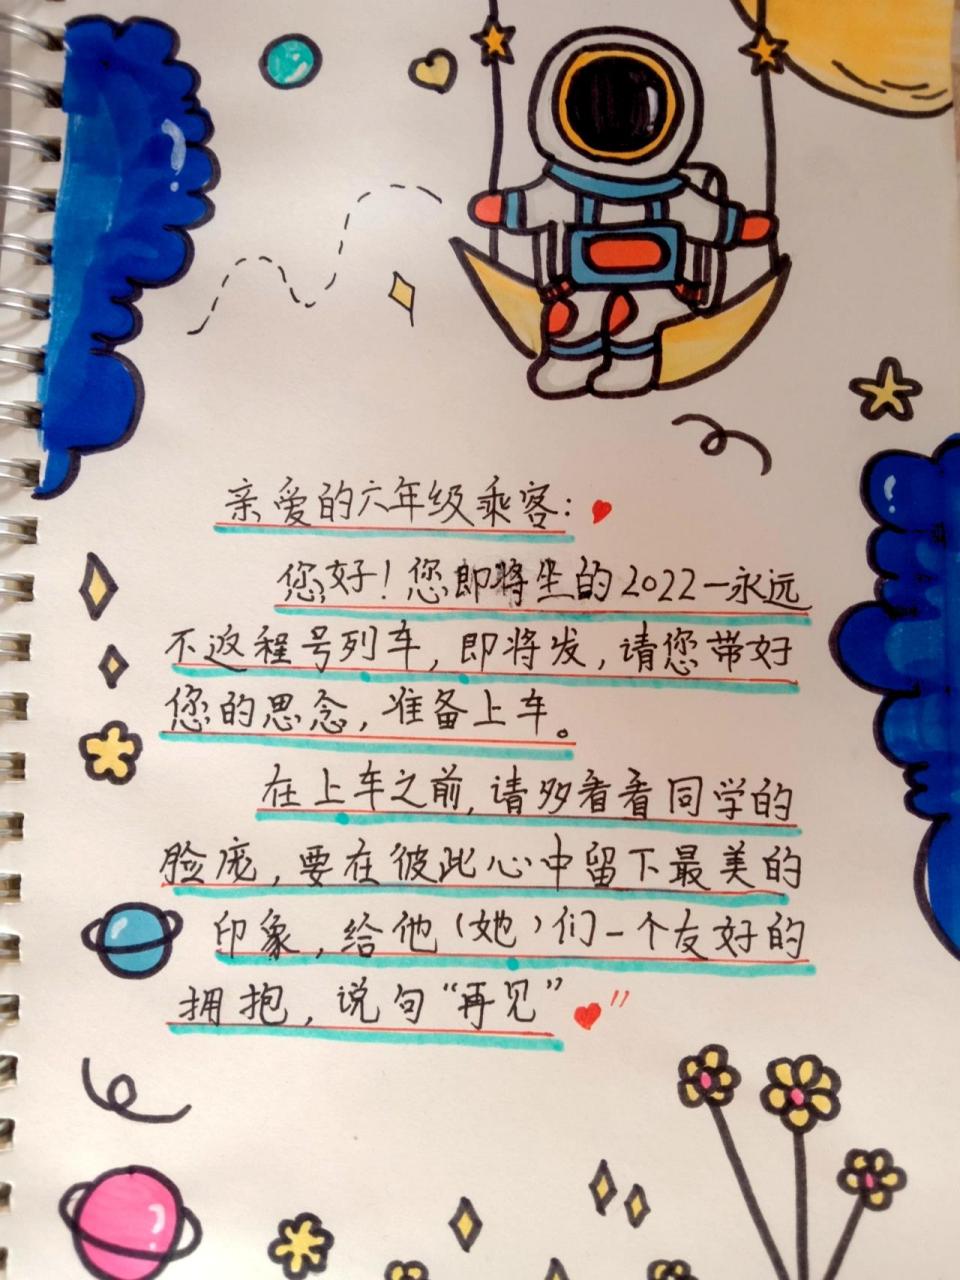 亲爱的六年级乘客:
您好!您即将坐的2022一永远
不返程号列车,即将发,请您带好
您的思念,准备上车。
在上车之前,请多看看同学的
脸庞,要在彼此心中留下最美的
印象,给他(她)们一个友好的
拥抱,说句“再见”